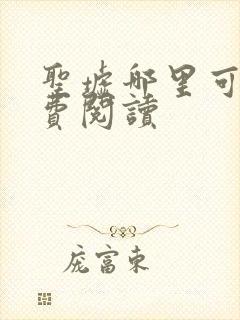 聖墟哪里可
費閱讀
庞富東